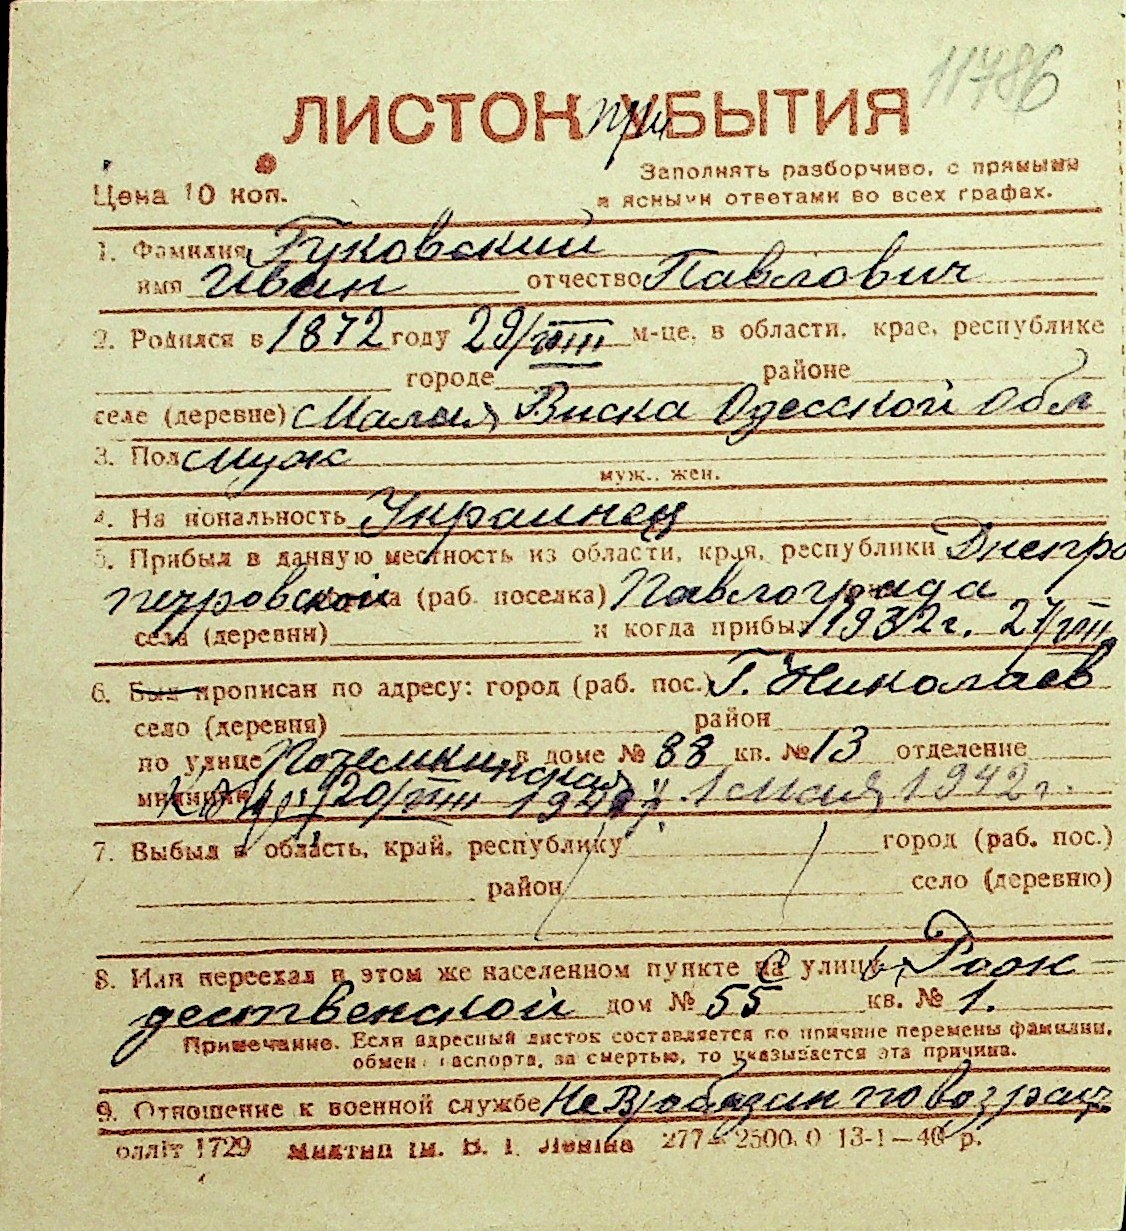 11786
ЛИСТОК при УБЫТИЯ
Заполнять разборчиво, с прямыми
Цена 10 коп.
и ясными ответами во всех графах.
1. Фамилия Гуковский
имя Иван отчество Павлович
2. Родился в 1872 году 29/VIII м-це, в области, крае, республике
городе районе
селе (деревне) Малая Виска Одесской обл
3. Пол муж
муж., жен.
4. Национальность Украинец
5. Прибыл в данную местность из области, края, республики Днепро
петровской (раб. поселка) Павлограда
села (деревни) и когда прибыл 1932 г. 27/VIII
6. Был прописан по адресу: город (раб. пос.) Г. Николаев
село (деревня) район
по улице Потемкинская в доме № 88 кв. № 13 отделение
милиции 20/VIII 194 1 мая 1942 г.
7. Выбыл в область, край, республику город (раб. пос.)
район село (деревню)
8. Или переехал в этом же населенном пункте с улицы Рож-
дественской дом № 55 кв. № 1.
Примечание. Если адресный листок составляется по причине перемены фамилии,
обмен паспорта, за смертью, то указывается эта причина.
9. Отношение к военной службе Не в/обязан по возраст
облліт 1729 Миктип ім. В. І. Леніна 277—2500.0 13-1—40 р.